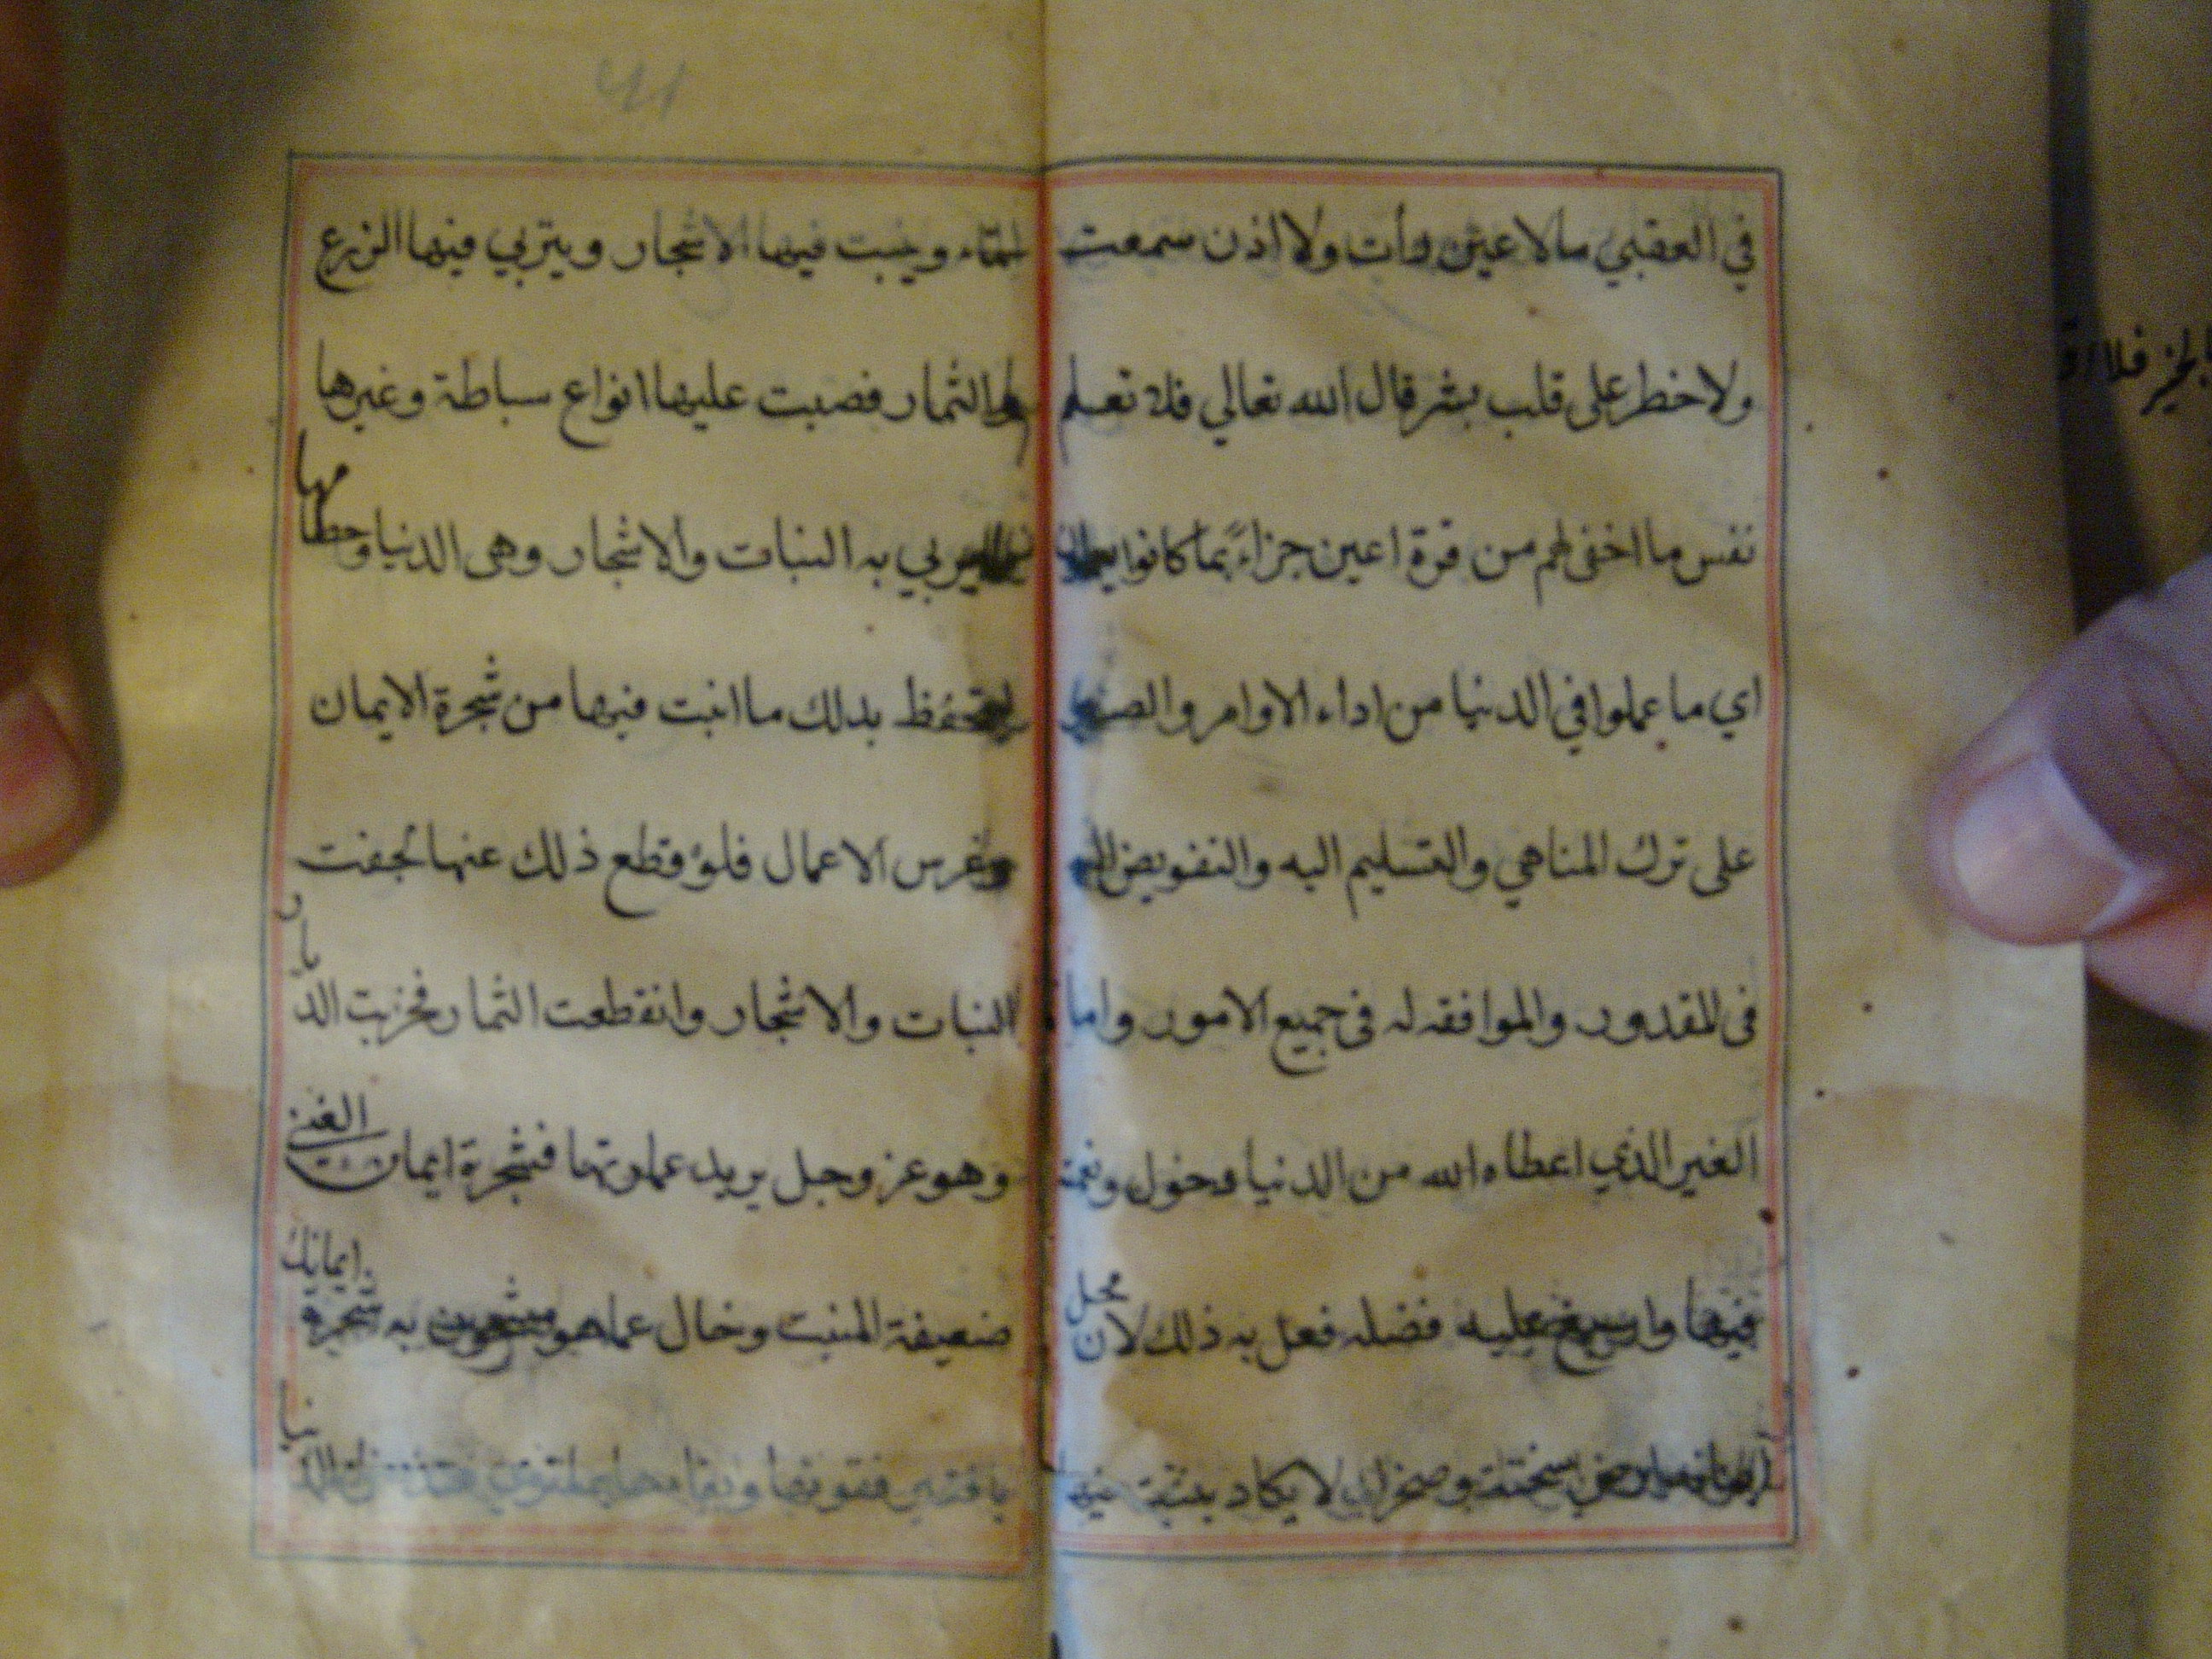 في العقبي مالا عين رأت ولا اذن سمعت
ولا خطر على قلب بشر قال الله تعالي فلا تعلم
نفس ما اخفي لهم من قرة اعين جزاءً بما كانوا
اي ما عملوا في الدنيا من اداء الاوامر والصبر
على ترك المناهي والتسليم اليه والتفويض اليه
فى المقدور والموافقه له فى جميع الامور واما
الغير الذي اعطاه الله من الدنيا وخول ونعمه
فيها واسبغ عليه فضله فعل به ذلك لان محل
لا يكاد يثبت فيها
الماء وينبت فيها الاشجار ويتربي فيها الزرع
والثمار فصبت عليها انواع سباطة وغيرها
يربي به النبات والاشجار وهي الدنيا وحطامها
ليحفظ بذلك ما انبت فيها من شجرة الايمان
وغرس الاعمال فلو قطع ذلك عنها لجفت
النبات والاشجار وانقطعت الثمار فخربت الديار
وهو عز وجل يريد عمارتها فشجرة ايمان الغني
ضعيفة المنبت وخال عما هو مشحون به شجرة ايمانك
يا فقير فقوتها وبقاءها بما الدنيا
41
الخير فلا